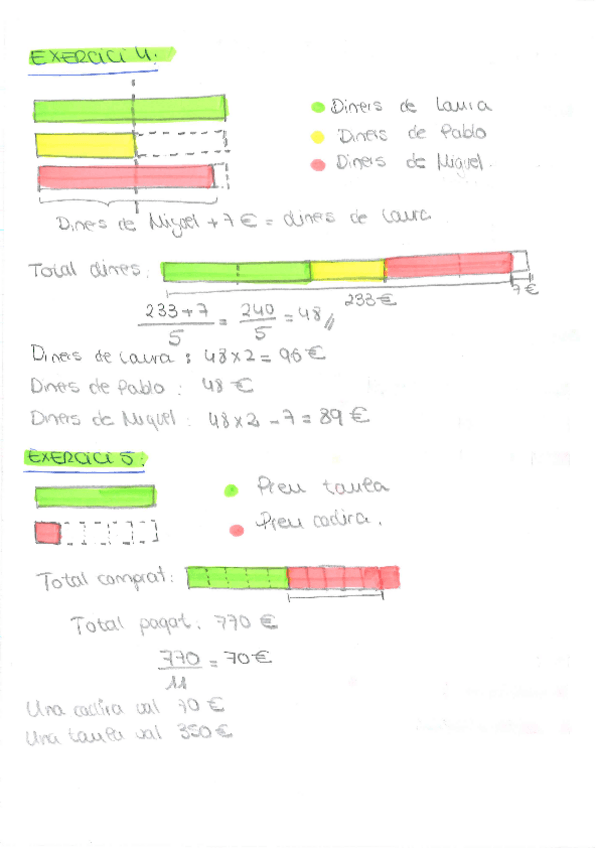 EXERCICI 4:
Diners de Laura
Diners de Pablo
Diners de Miguel.
Diners de Miguel + 7 € = diners de Laura
Total diners:
233 €
7 €
233 + 7 / 5 = 240 / 5 = 48 //
Diners de Laura : 48 x 2 = 96 €
Diners de Pablo : 48 €
Diners de Miguel : 48 x 2 - 7 = 89 €
EXERCICI 5:
Preu taula
Preu cadira.
Total comprat:
Total pagat: 770 €
770 / 11 = 70 €
Una cadira val 70 €
Una taula val 350 €